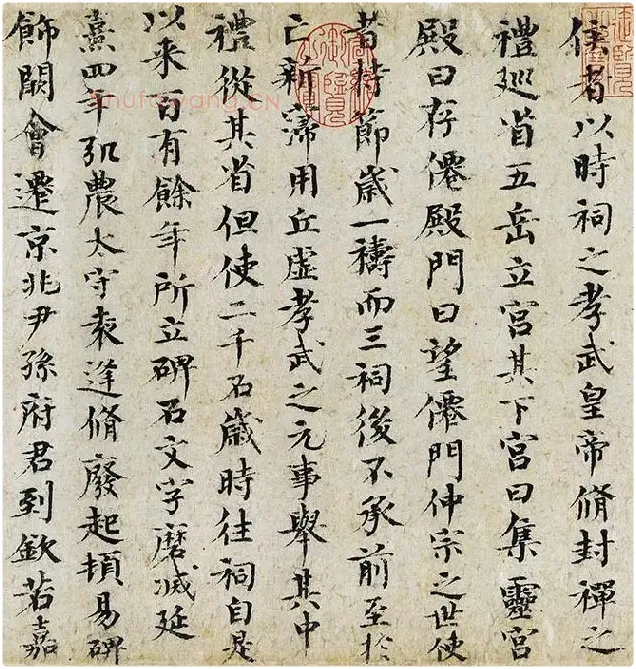 侯者以時祠之孝武皇帝脩封禪之
禮巡省五岳立宮其下宮曰集靈宮
殿曰存僊殿門曰望僊門仲宗之世使
者持節歲一禱而三祠後不承前至於
亡新寖用丘虛孝武之元事舉其中
禮從其省但使二千石歲時往祠自是
以来百有餘年所立碑石文字磨滅延
熹四年弘農太守袁逢脩廢起頓易碑
飾闕會遷京兆尹孫府君到欽若嘉
shufawang.CN